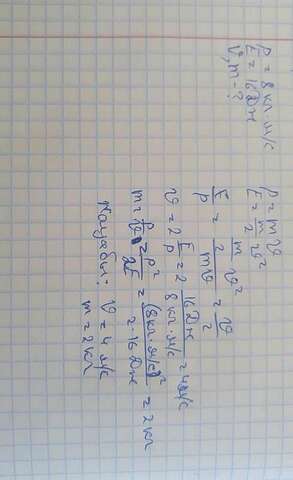 P = 8 кг·м/с
E = 16 Дж
V, m - ?
P = m υ
E = m/2 υ²
E/P = m/2 υ² / mυ = υ/2
υ = 2 E/P = 2 16 Дж / 8 кг·м/с = 4 м/с
m = P/υ = P²/2E = (8 кг·м/с)² / 2·16 Дж = 2 кг
υ = 4 м/с
m = 2 кг